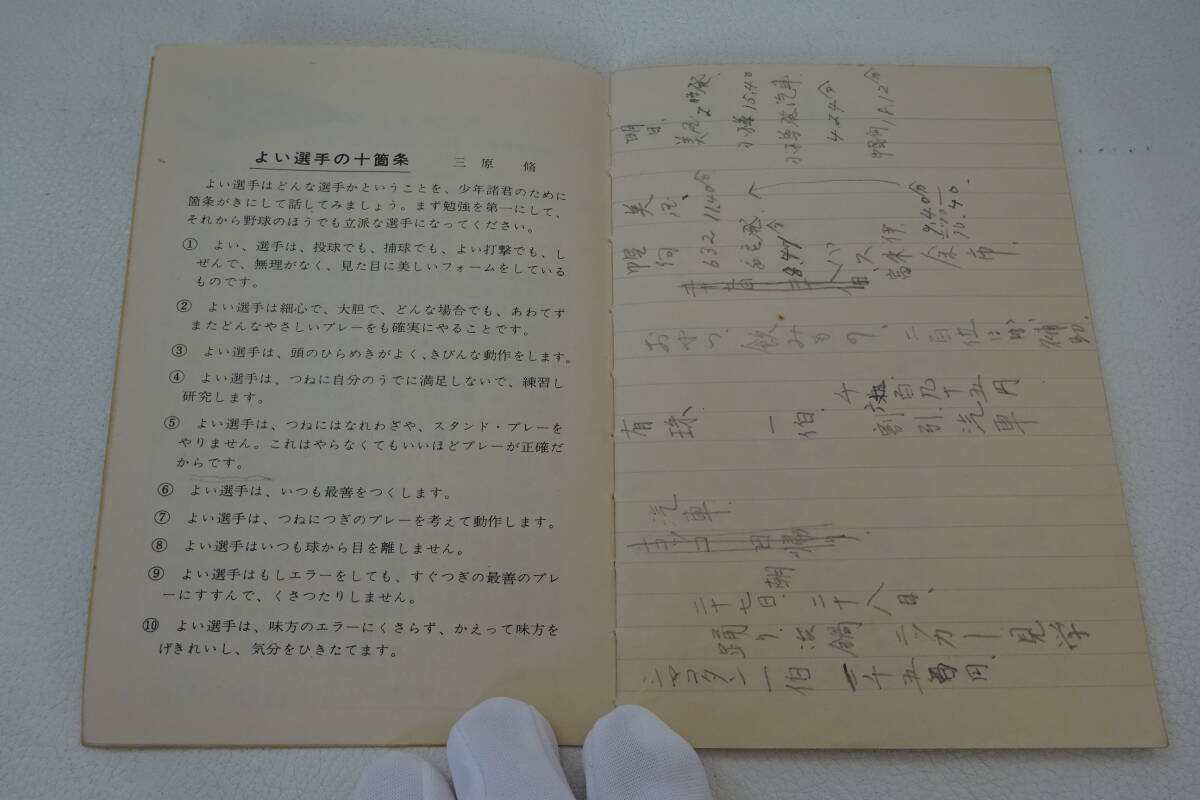 よい選手の十箇条 三原 脩
よい選手はどんな選手かということを、少年諸君のために
箇条がきにして話してみましょう。まず勉強を第一にして、
それから野球のほうでも立派な選手になってください。
① よい、選手は、投球でも、捕球でも、よい打撃でも、し
ぜんで、無理がなく、見た目に美しいフォームをしている
ものです。
② よい選手は細心で、大胆で、どんな場合でも、あわてず
またどんなやさしいプレーをも確実にやることです。
③ よい選手は、頭のひらめきがよく、きびんな動作をします。
④ よい選手は、つねに自分のうでに満足しないで、練習し
研究します。
⑤ よい選手は、つねにはなれわざや、スタンド・プレーを
やりません。これはやらなくてもいいほどプレーが正確だ
からです。
⑥ よい選手は、いつも最善をつくします。
⑦ よい選手は、つねにつぎのプレーを考えて動作します。
⑧ よい選手はいつも球から目を離しません。
⑨ よい選手はもしエラーをしても、すぐつぎの最善のプレ
ーにすすんで、くさつたりしません。
⑩ よい選手は、味方のエラーにくさらず、かえって味方を
げきれいし、気分をひきたてます。
明日、
小樽 15.40
小樽発汽車
4.24分
美国、
11.40分
632
8.47分
バス
余市
9.40分
10.40
おやつ 飲みもの、二百位は
有珠、一伯
百九十五円
割引 汽車
汽車
二十七日朝 二十八日、
踊り 見学
シャコタン一伯 一千五百円